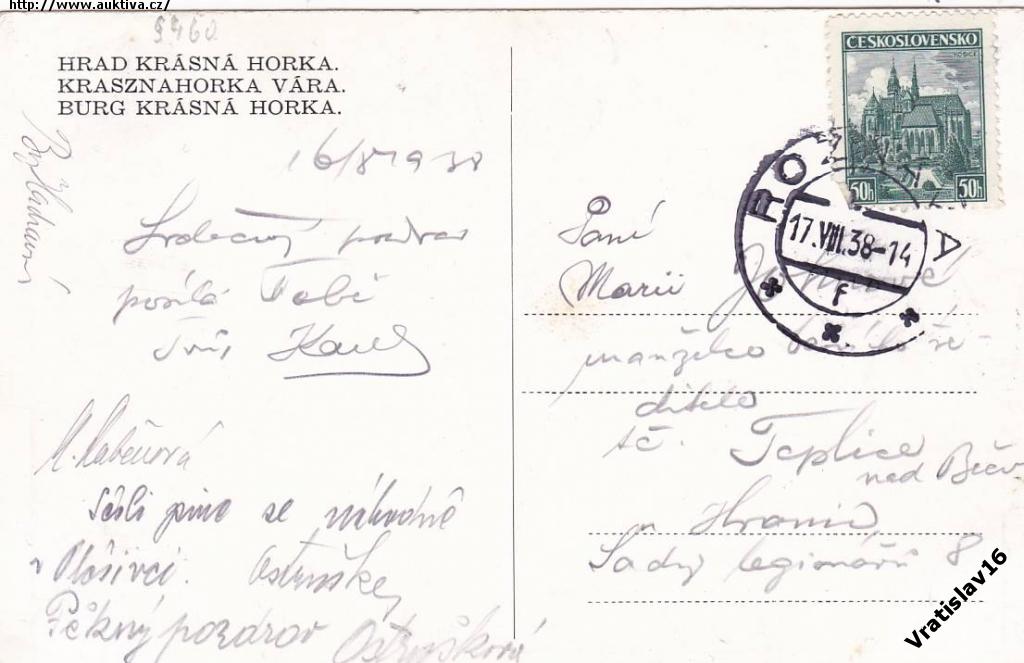 http://www.auktiva.cz/
9460
HRAD KRÁSNÁ HORKA.
KRASZNAHORKA VÁRA.
BURG KRÁSNÁ HORKA.
16/8 1938
Srdečný pozdrav
posílá Tobě
Tvůj Karel
M. Kabeůová
Sešli jsme se náhodně
v Plešivci.
Pěkný pozdrav
ČESKOSLOVENSKO
KOŠICE
50h 50h
17.VIII.38-14
F
Paní
Marii
manželce
ditele
t.č. Teplice
nad Bečv
u Hranic
Sady legionářů 8
Vratislav16